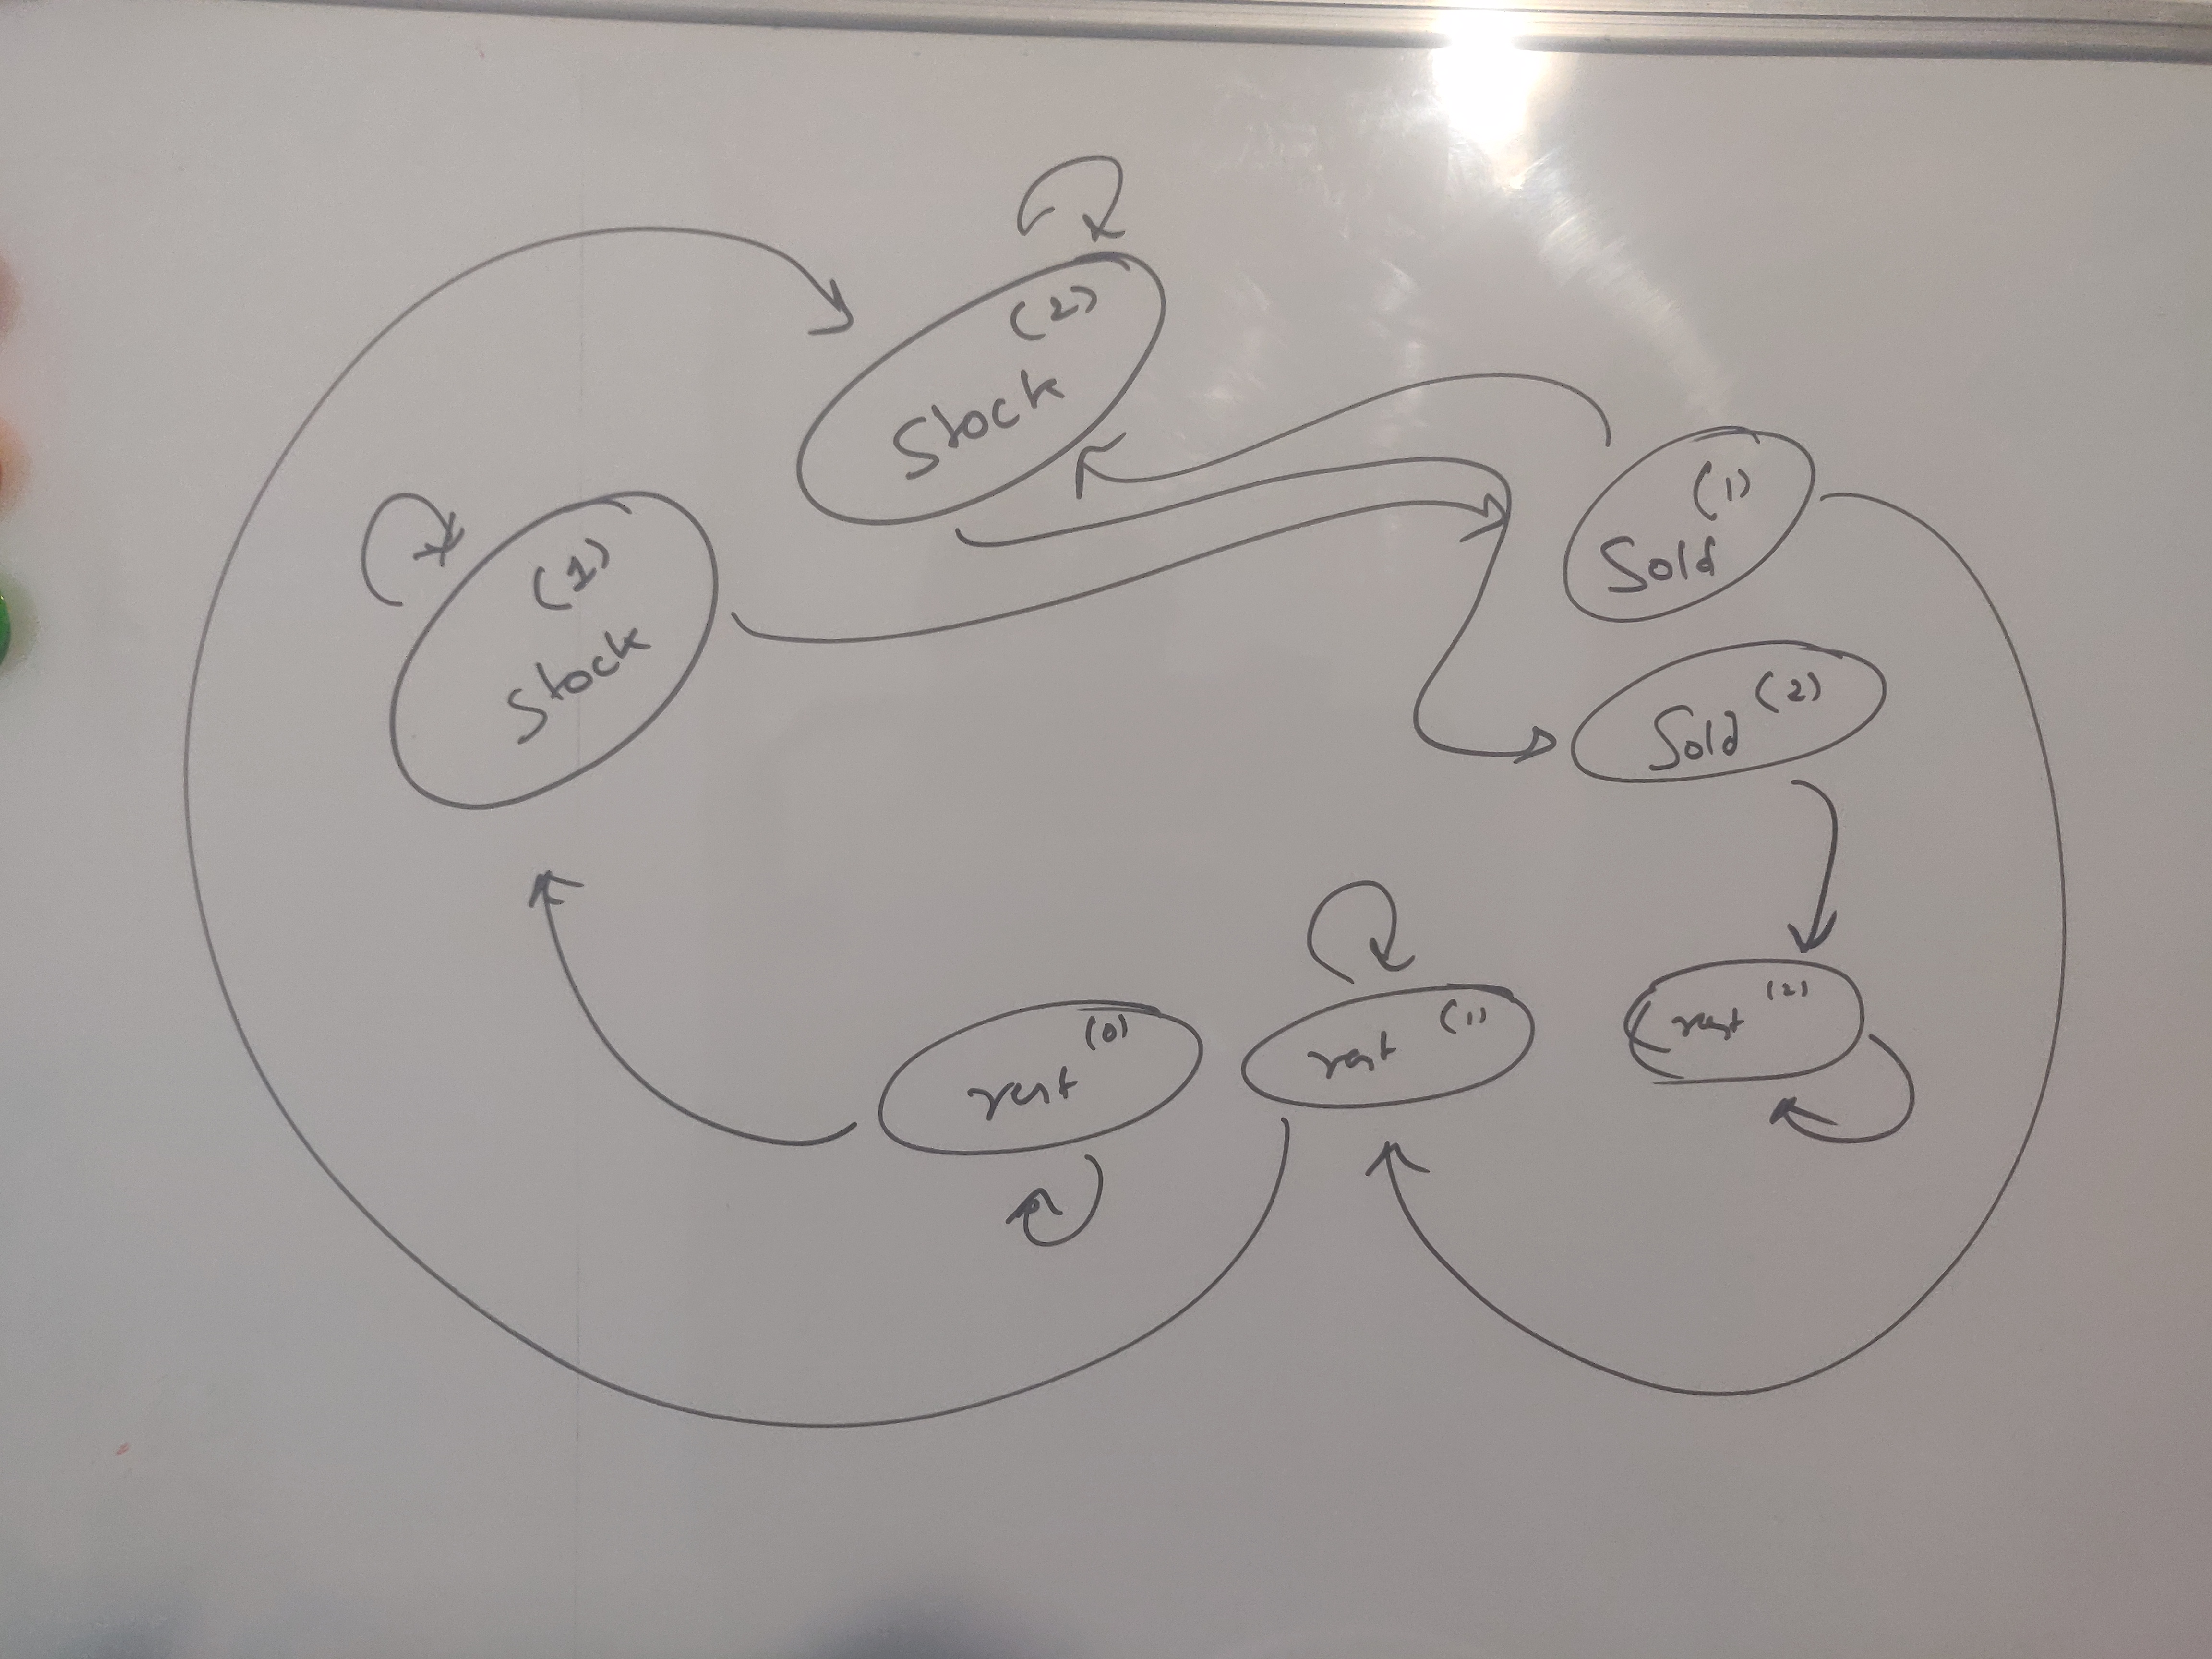 (2)
Stock
(1)
Stock
(1)
Sold
Sold (2)
rest (0)
rest (1)
rest (2)